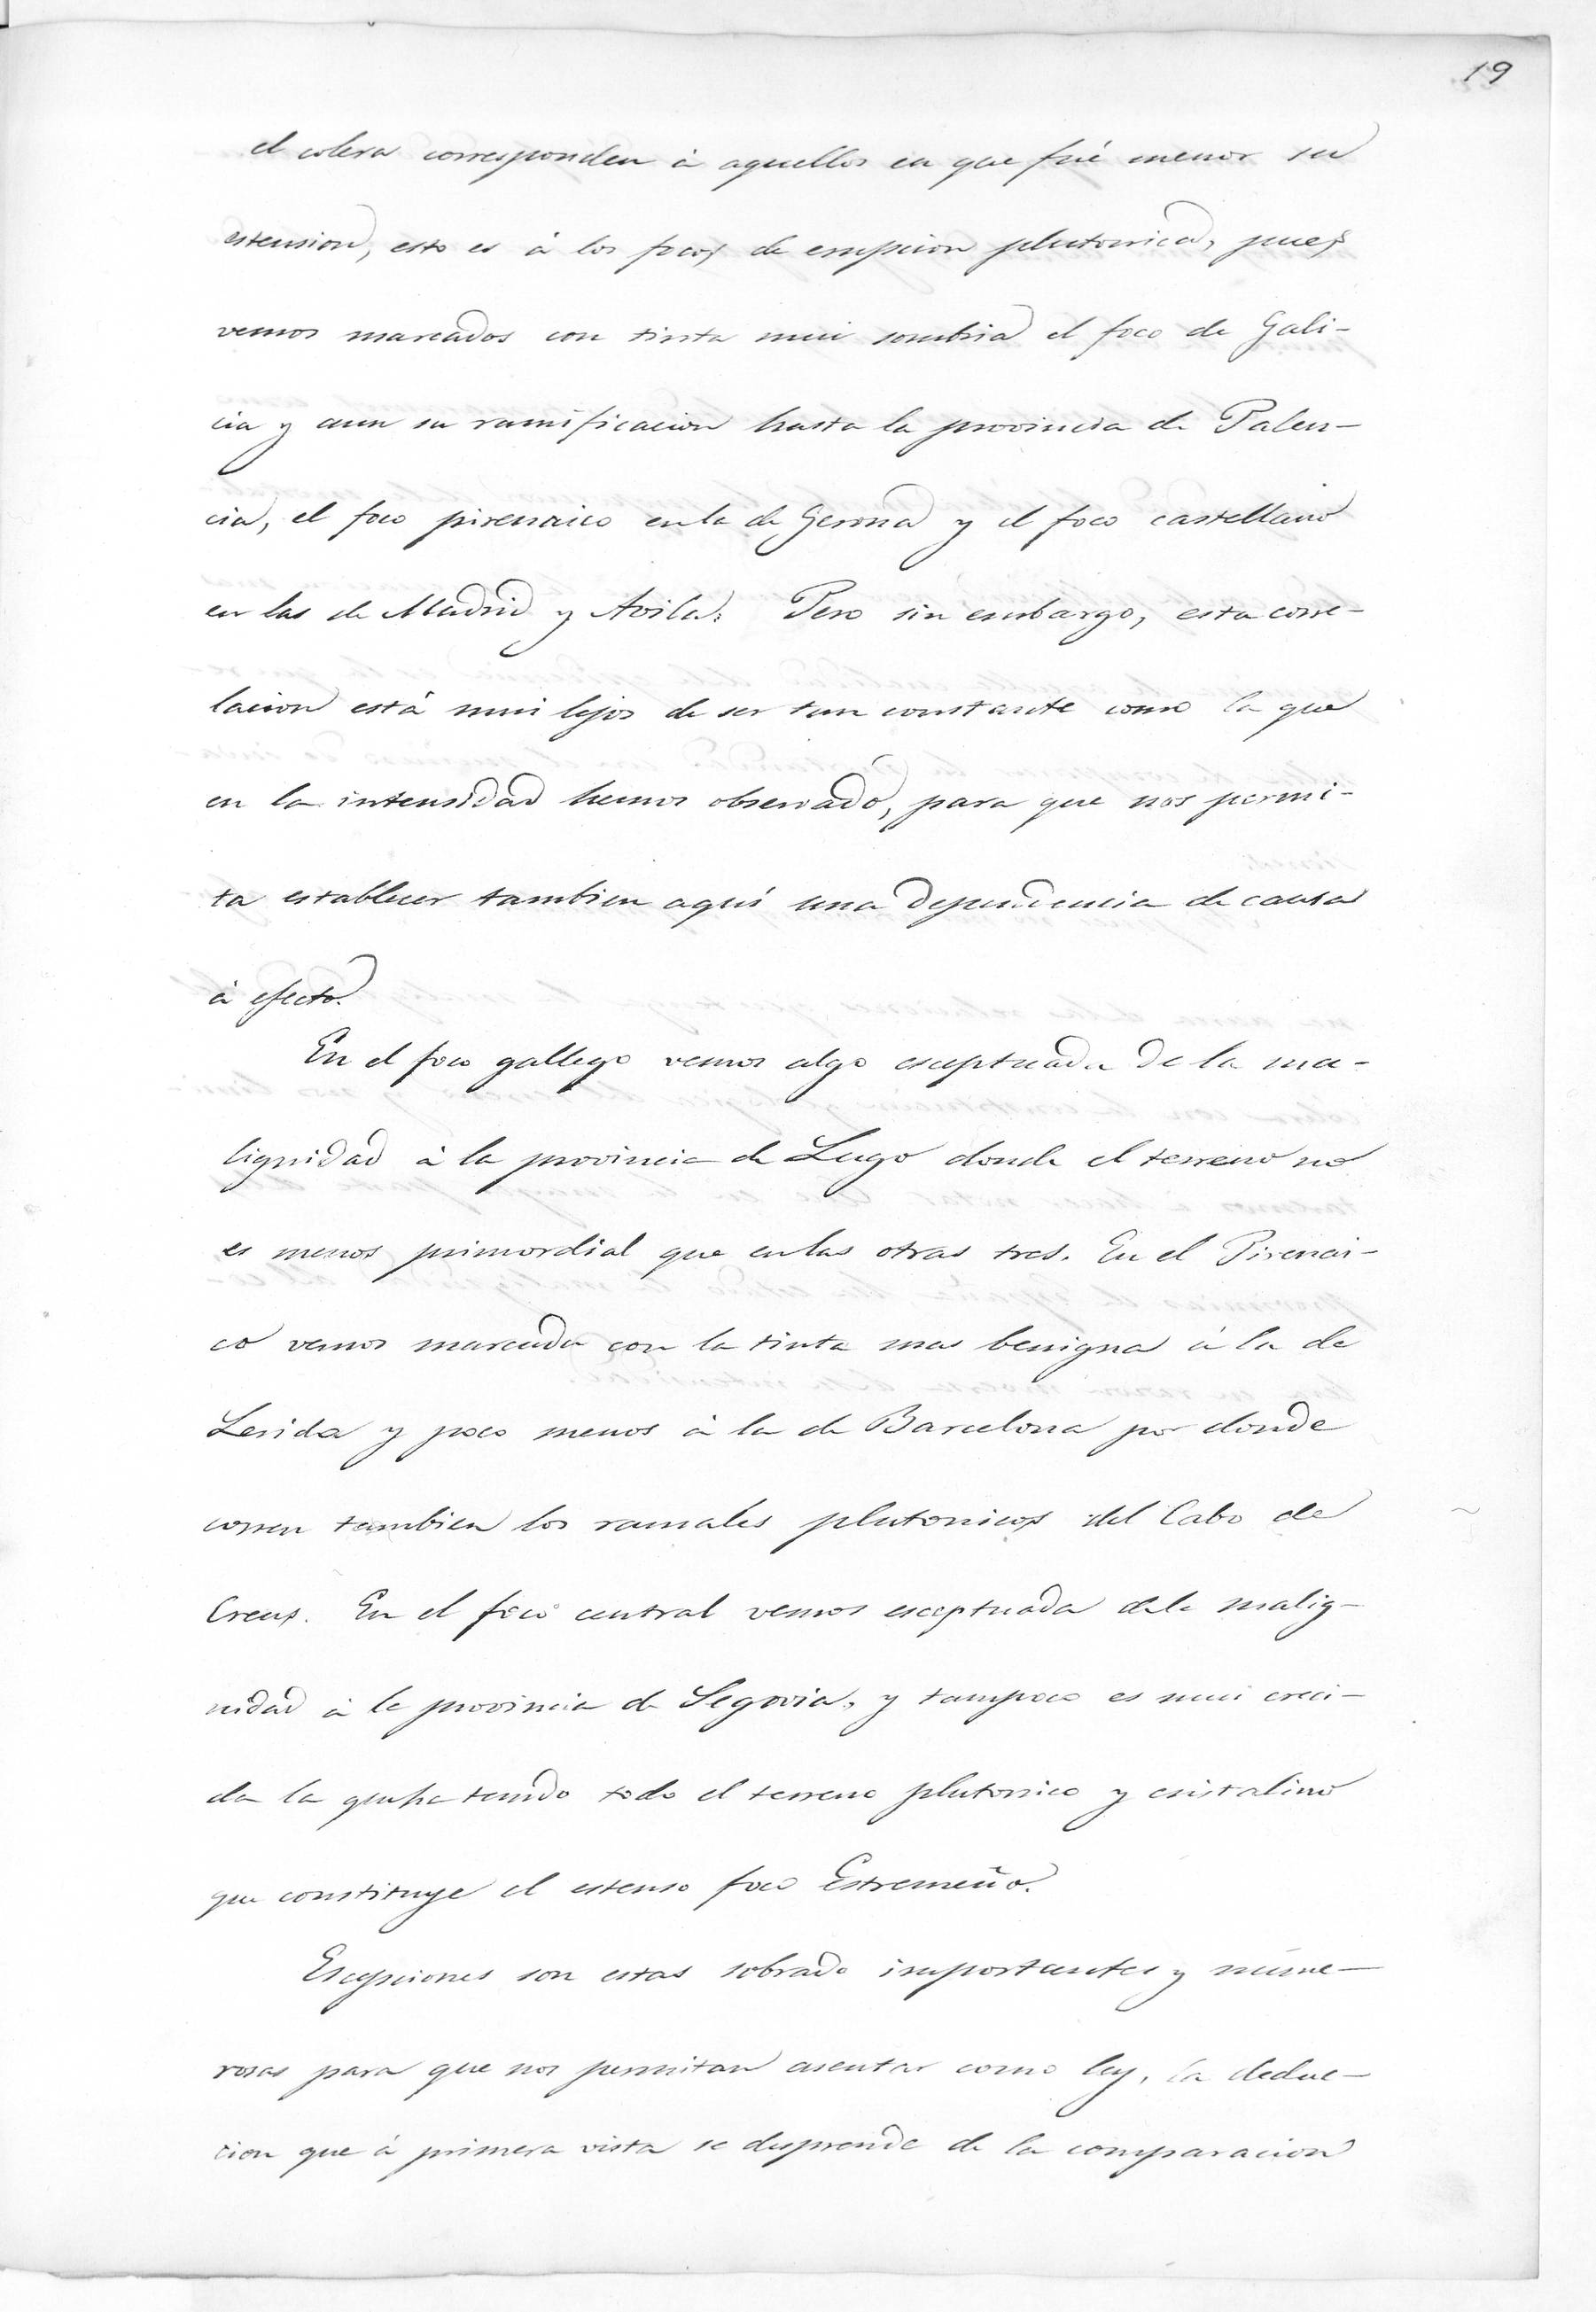 19
el colera corresponden à aquellos en que fué menor su
estension, esto es à los focos de erupcion plutonica, pues
vemos marcados con tinta mui sombria el foco de Gali-
cia y aun su ramificacion hasta la provincia de Palen-
cia, el foco pirenaico en la de Gerona y el foco castellano
en las de Madrid y Avila. Pero sin embargo, esta corre-
lacion está mui lejos de ser tan constante como la que
en la intensidad hemos observado, para que nos permi-
ta establecer tambien aquí una dependencia de causa
à efecto.
En el foco gallego vemos algo esceptuada de la ma-
lignidad à la provincia de Lugo donde el terreno no
es menos primordial que en las otras tres. En el Pirenai-
co vemos marcada con la tinta mas benigna à la de
Lerida y poco menos à la de Barcelona por donde
corren tambien los ramales plutonicos del Cabo de
Creus. En el foco central vemos esceptuada de la malig-
nidad à la provincia de Segovia, y tampoco es mui creci-
da la que ha tenido todo el terreno plutonico y cristalino
que constituye el estenso foco Estremeño.
Escepciones son estas sobrado importantes y nume-
rosas para que nos permitan asentar como ley, la deduc-
cion que á primera vista se desprende de la comparacion